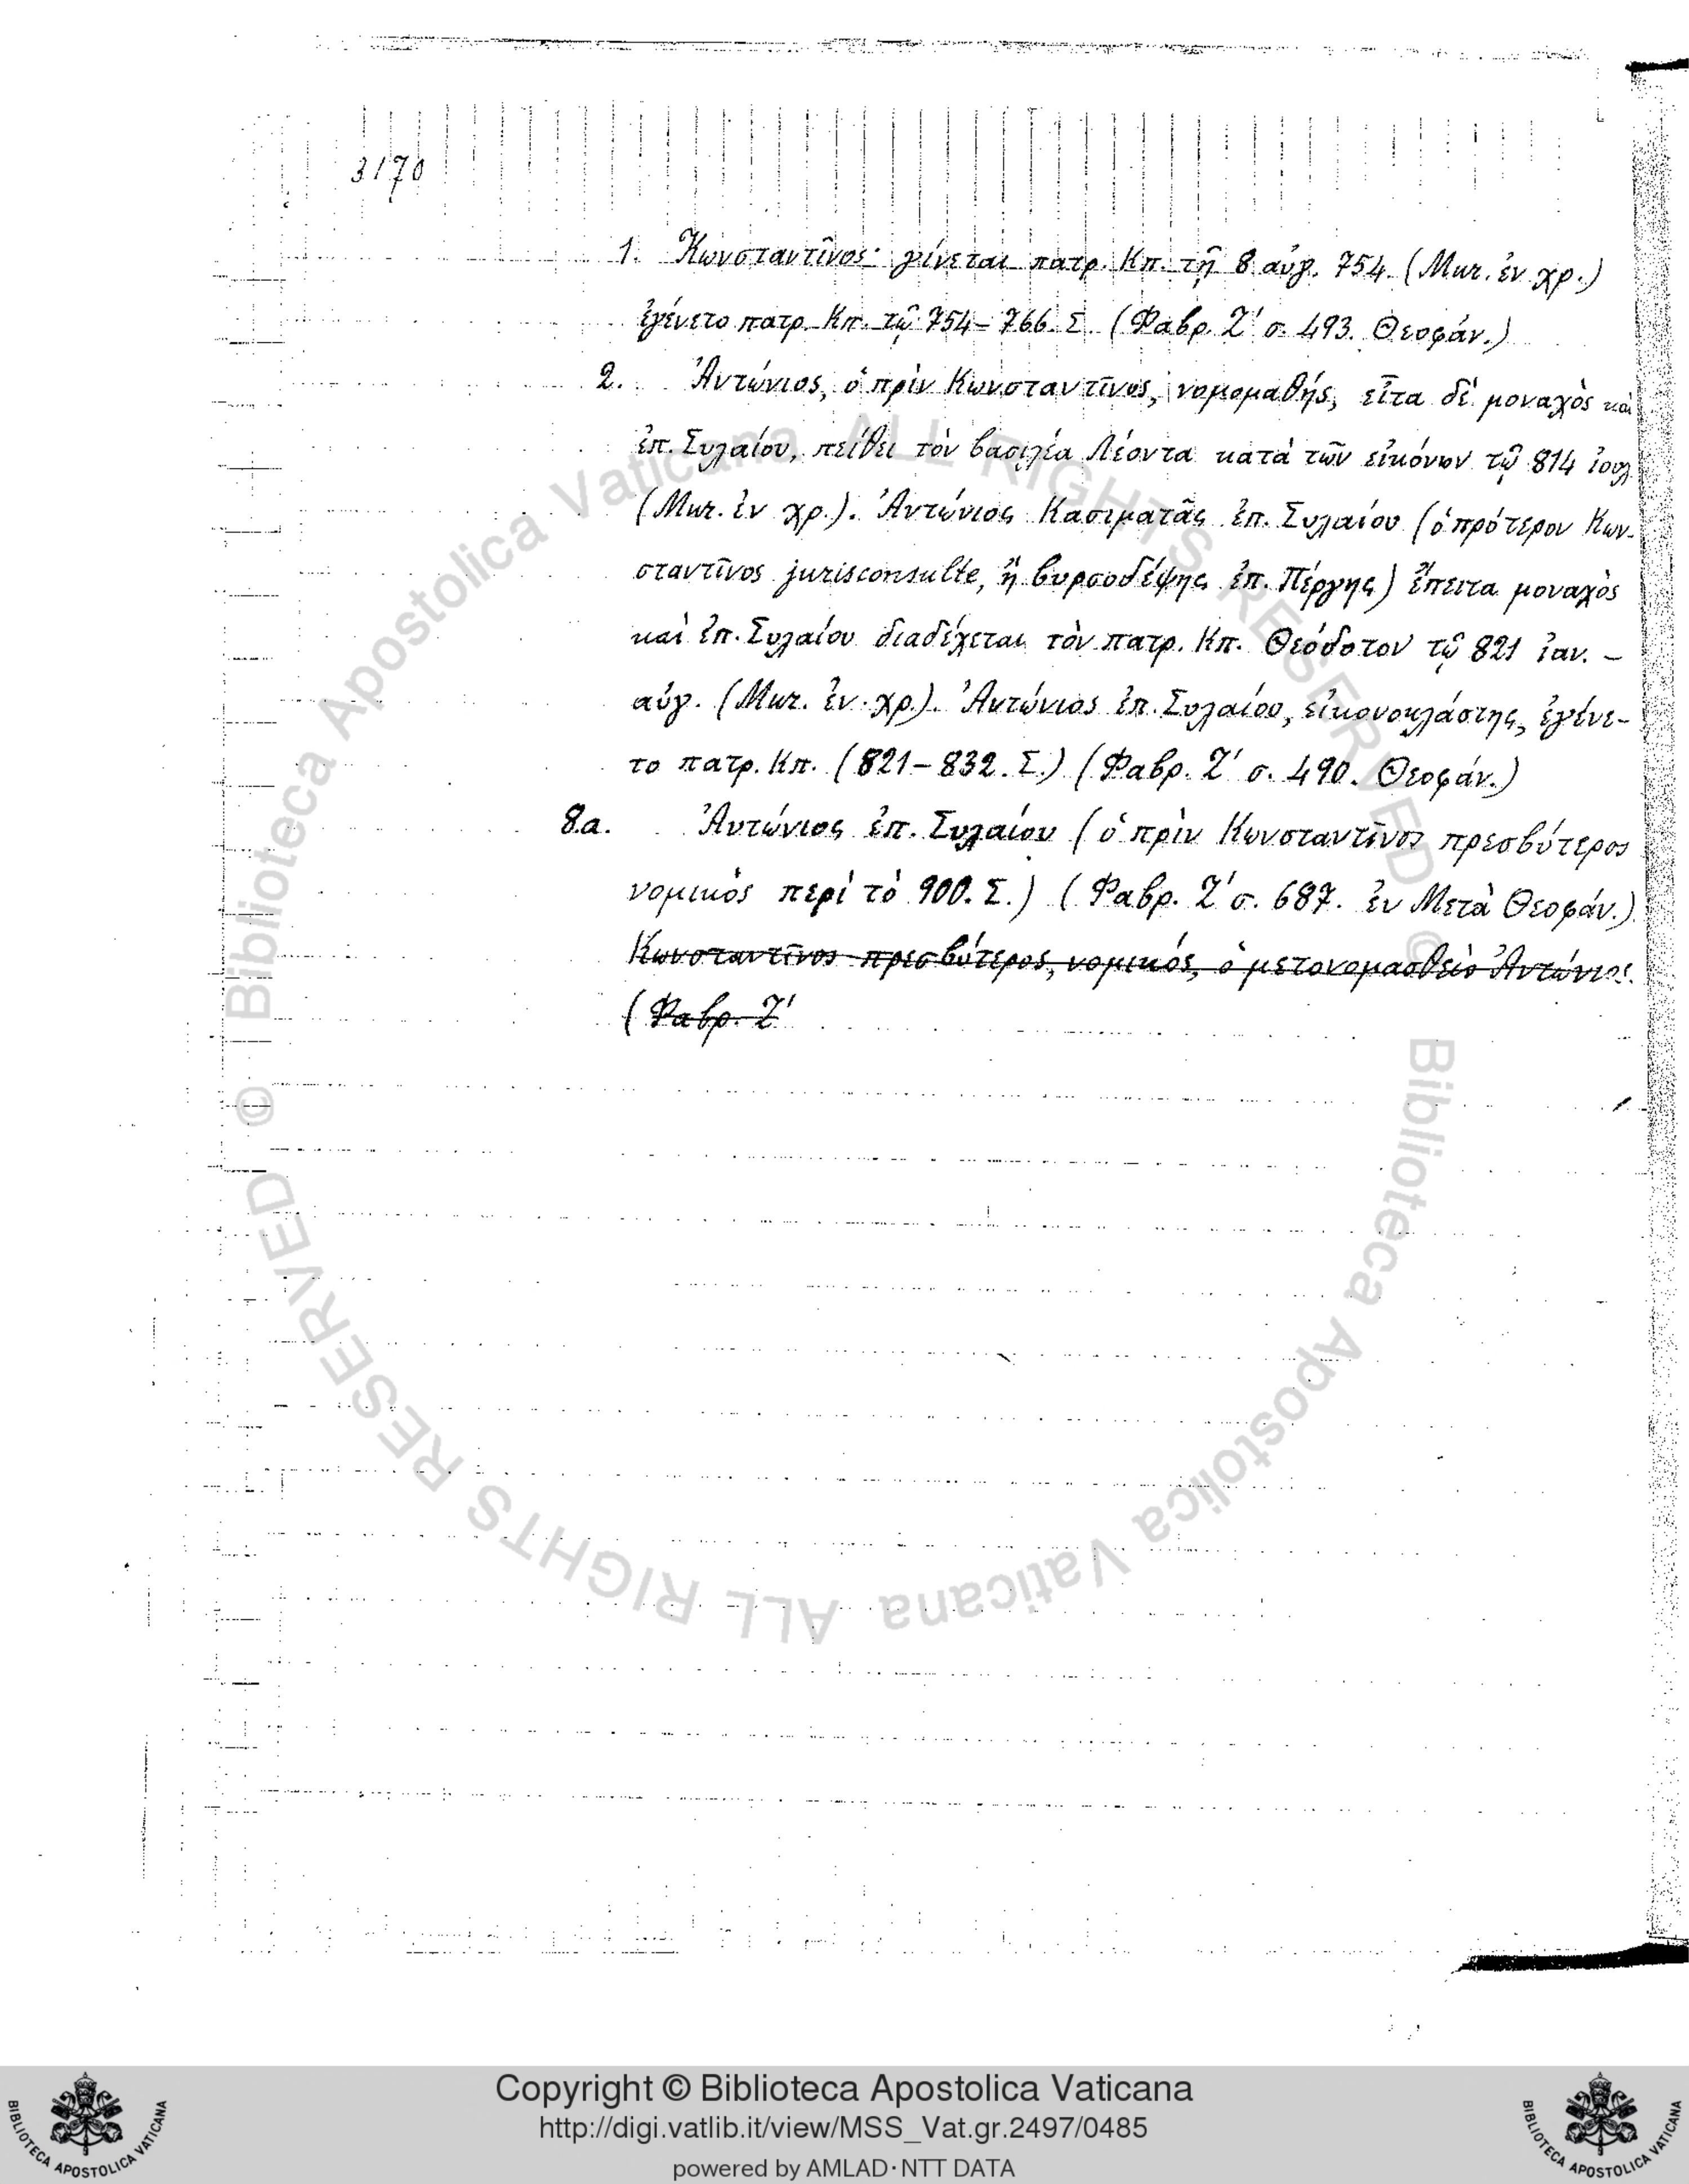 3170
1. Κωνσταντῖνος· γίνεται πατρ. Κπ. τῇ 8 αὐγ. 754. (Μυτ. ἐν χρ.)
ἐγένετο πατρ. Κπ. τῷ 754–766. Σ. (Φαβρ. Ζ' σ. 493. Θεοφάν.)
2. Ἀντώνιος, ὁ πρὶν Κωνσταντῖνος, νομομαθής, εἶτα δὲ μοναχὸς καὶ
ἐπ. Συλαίου, πείθει τὸν βασιλέα Λέοντα κατὰ τῶν εἰκόνων τῷ 814 ἰουλ
(Μυτ. ἐν χρ.). Ἀντώνιος Κασιματᾶς ἐπ. Συλαίου (ὁ πρότερον Κων-
σταντῖνος jurisconsulte, ἢ βυρσοδέψης ἐπ. Πέργης) ἔπειτα μοναχὸς
καὶ ἐπ. Συλαίου διαδέχεται τὸν πατρ. Κπ. Θεόδοτον τῷ 821 ἰαν. –
αὐγ. (Μυτ. ἐν χρ.). Ἀντώνιος ἐπ. Συλαίου, εἰκονοκλάστης, ἐγένε-
το πατρ. Κπ. (821–832. Σ.) (Φαβρ. Ζ' σ. 490. Θεοφάν.)
8.a. Ἀντώνιος ἐπ. Συλαίου (ὁ πρὶν Κωνσταντῖνος πρεσβύτερος
νομικὸς περὶ τὸ 900. Σ.) (Φαβρ. Ζ' σ. 687. ἐν Μετὰ Θεοφάν.)
Κωνσταντῖνος πρεσβύτερος, νομικός, ὁ μετονομασθεὶς Ἀντώνιος.
(Φαβρ. Ζ'
© Biblioteca Apostolica Vaticana ALL RIGHTS RESERVED
© Biblioteca Apostolica Vaticana ALL RIGHTS RESERVED
Copyright © Biblioteca Apostolica Vaticana
http://digi.vatlib.it/view/MSS_Vat.gr.2497/0485
powered by AMLAD·NTT DATA
BIBLIOTECA APOSTOLICA VATICANA
BIBLIOTECA APOSTOLICA VATICANA